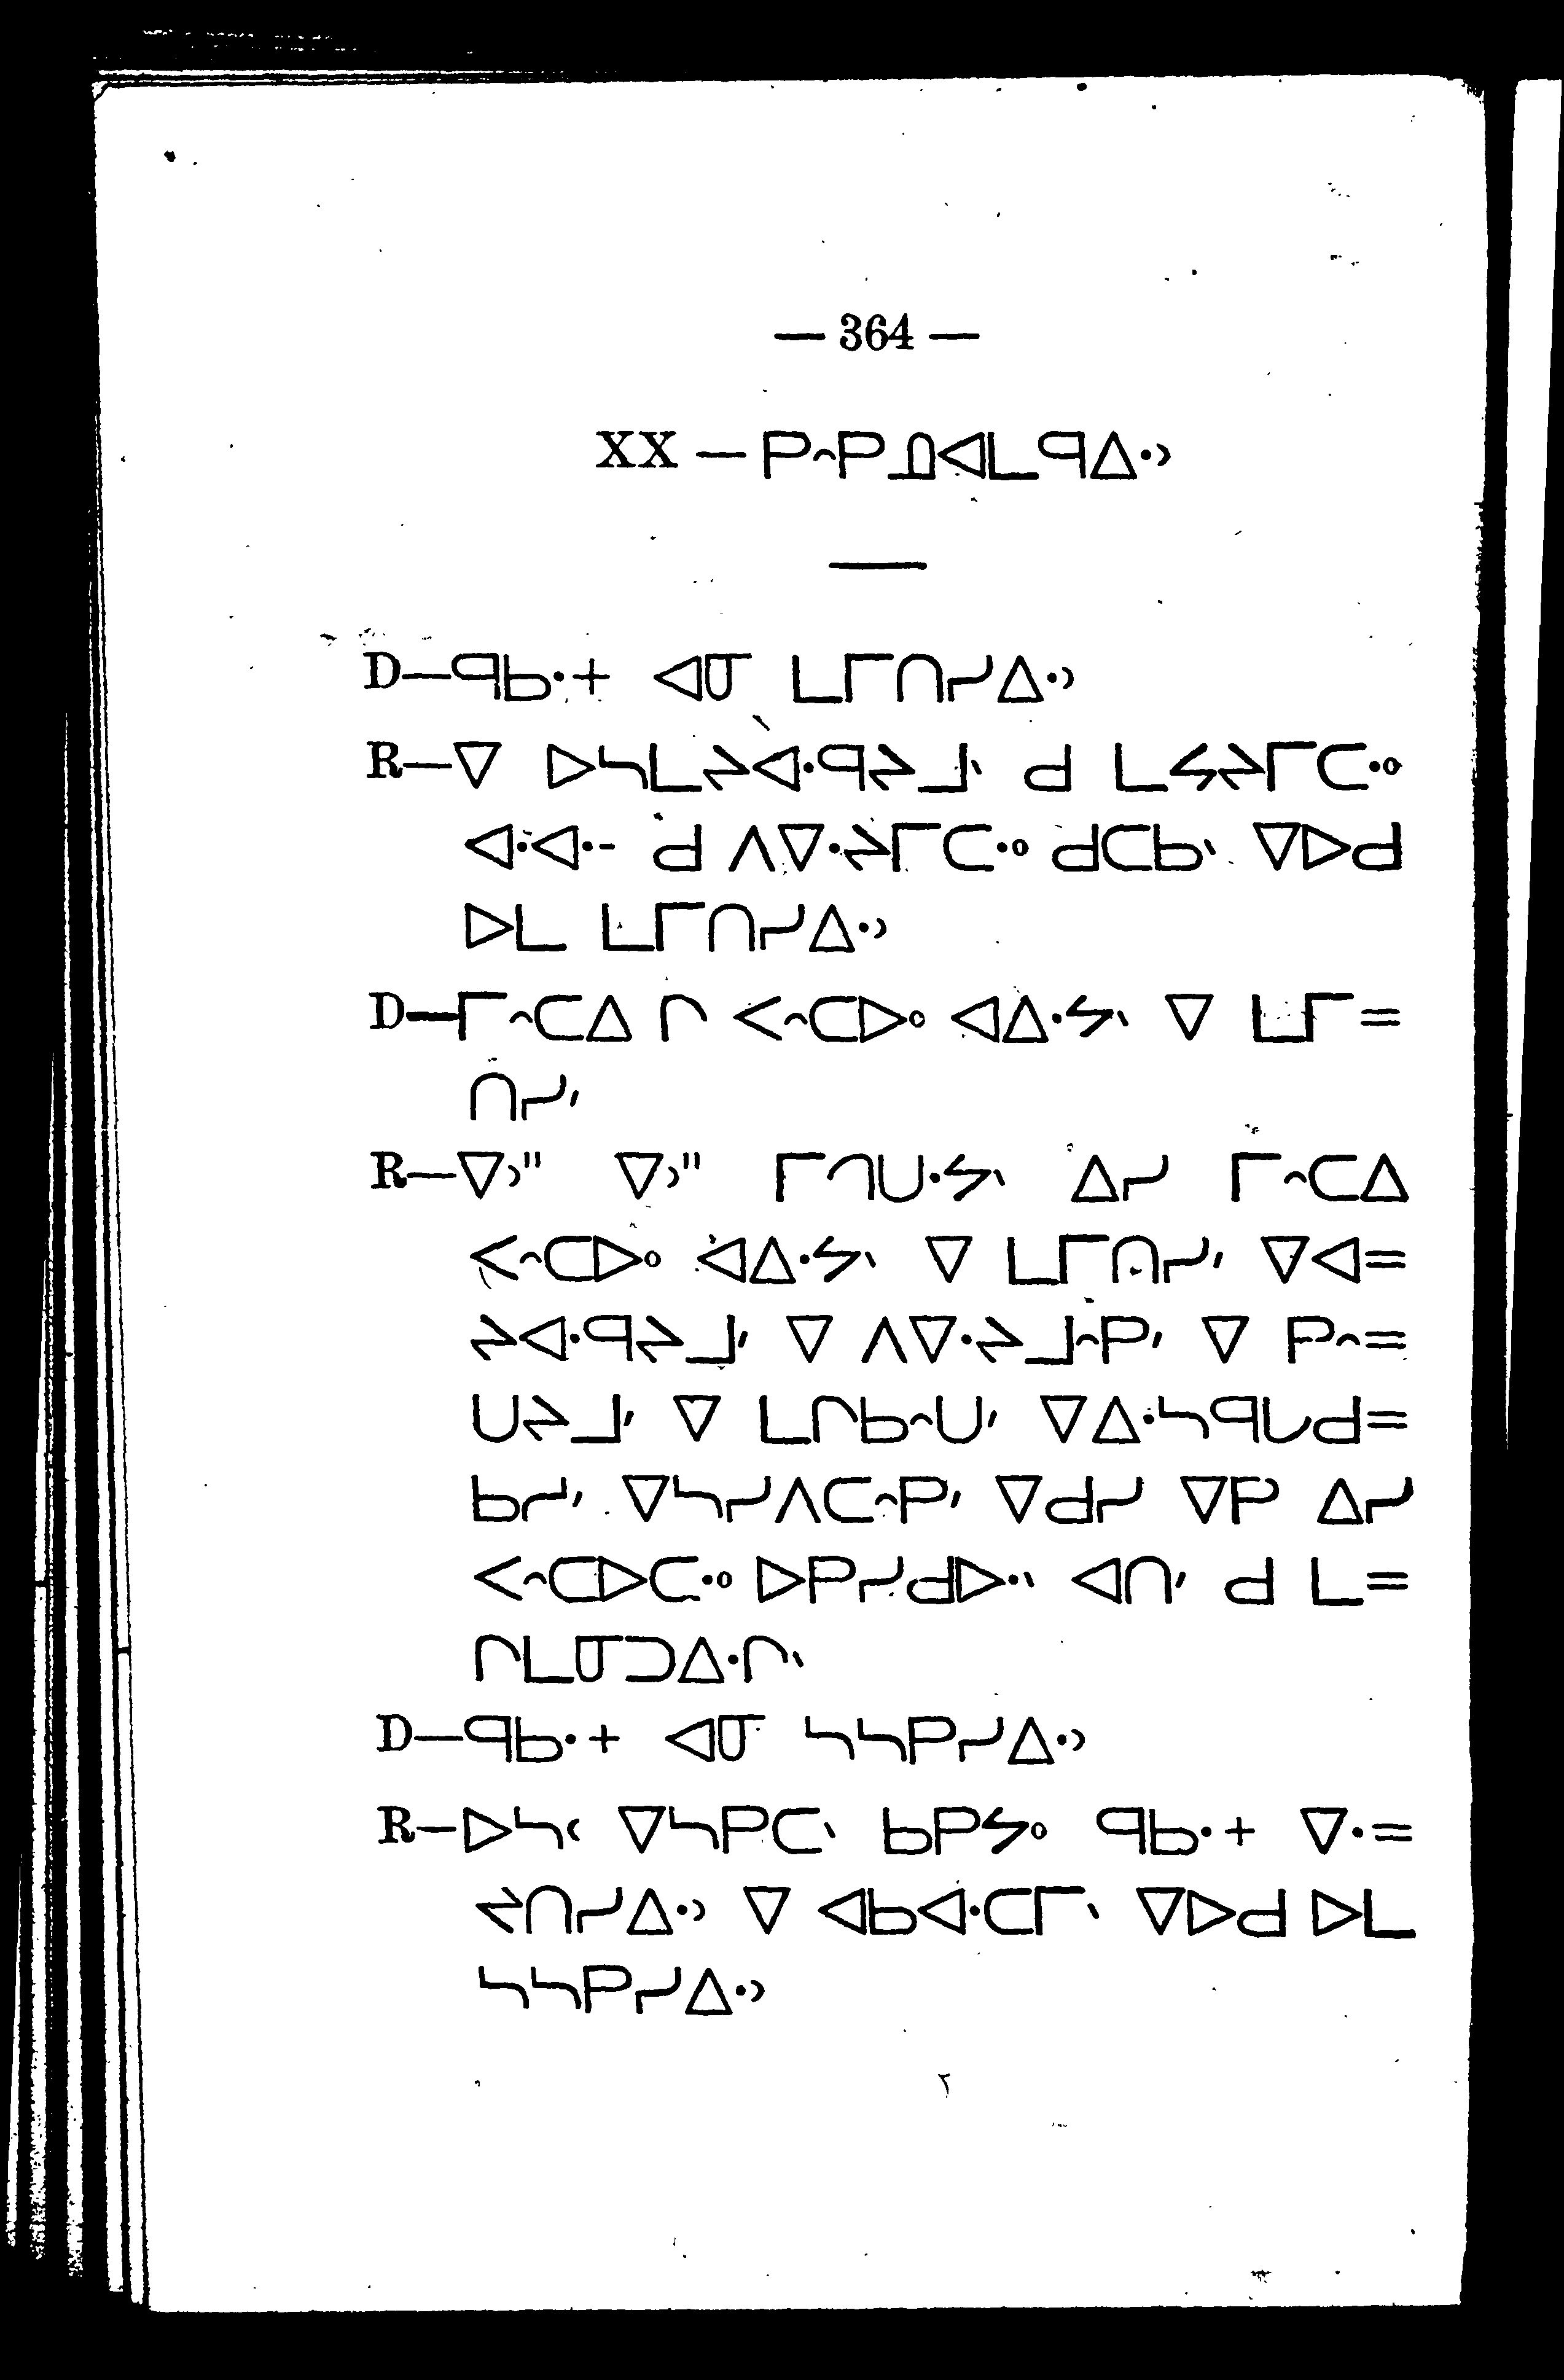 — 364 —
XX — ᑭᐢᑭᓄᐊᒪᑫᐃᐧᐣ
D—ᑫᑲᐧ+ ᐊᓂ ᒪᒥᑎᓯᐃᐧᐣ
R—ᐁ ᐅᓴᒪᔨᐊᐧᑫᔨᒧᐠ ᑯ ᒪᔭᔨᒥᑕᐧᐤ
ᐊᐧᐊᐧᐨ ᑯ ᐱᐁᐧᔨᒥᑕᐧᐤ ᑯᑕᑲᐠ ᐁᐅᑯ
ᐅᒪ ᒪᒥᑎᓯᐃᐧᐣ
D—ᒥᐢᑕᐃ ᒋ ᐸᐢᑕᐅᐤ ᐊᐃᐧᔭᐠ ᐁ ᒪᒥ=
ᑎᓯᐟ
R—ᐁᐣ" ᐁᐣ" ᒥᒉᑌᐧᔭᐠ ᐃᓯ ᒥᐢᑕᐃ
ᐸᐢᑕᐅᐤ ᐊᐃᐧᔭᐠ ᐁ ᒪᒥᑎᓯᐟ ᐁᐊ=
ᔨᐊᐧᑫᔨᒧᐟ ᐁ ᐱᐁᐧᔨᒧᐢᑭᐟ ᐁ ᑭᐢ=
ᑌᔨᒧᐟ ᐁ ᒪᒋᑲᐢᑌᐟ ᐁᐃᐧᓴᑫᒐᑯ=
ᑲᓯᐟ ᐁᓴᓯᐱᑕᐢᑭᐟ ᐁᑯᓯ ᐁᑭ ᐃᓯ
ᐸᐢᑕᐅᑕᐧᐤ ᐅᑭᓯᑯᐅᐧᐠ ᐊᑎᐟ ᑯ ᒪ=
ᒋᒪᓂᑐᐃᐧᒋᐠ
D—ᑫᑲᐧ+ ᐊᓂ ᓴᓴᑭᓯᐃᐧᐣ
R—ᐅᓴᒼ ᐁᓴᑭᑕᐠ ᑲᑭᔭᐤ ᑫᑲᐧ+ ᐁᐧ=
ᔪᑎᓯᐃᐧᐣ ᐁ ᐊᑲᐊᐧᑕᒥᐠ ᐁᐅᑯ ᐅᒪ
ᓴᓴᑭᓯᐃᐧᐣ